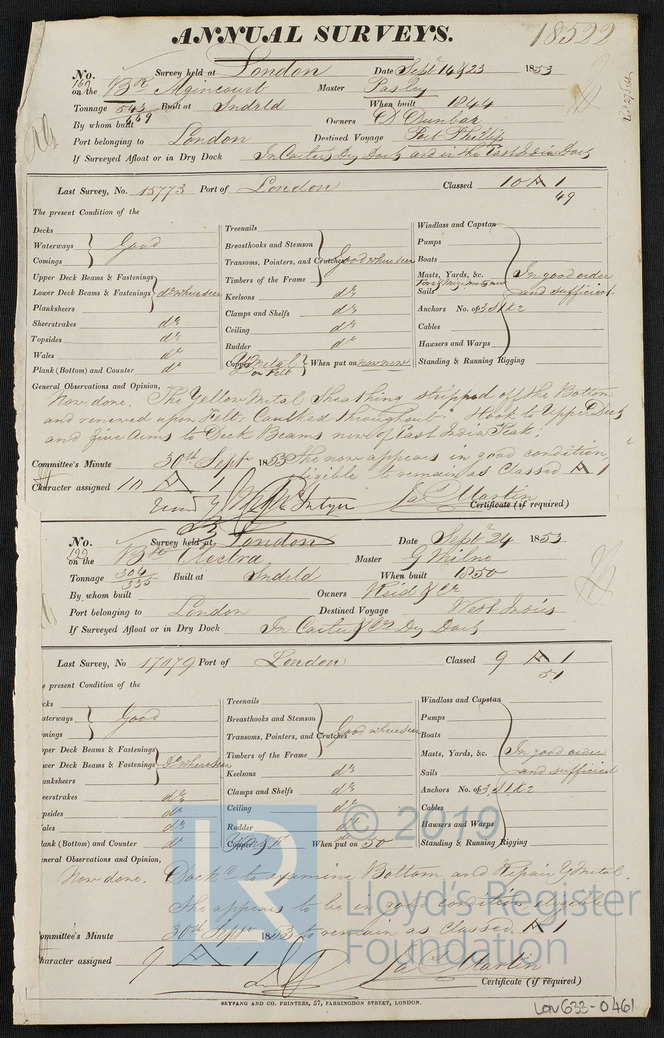 ANNUAL SURVEYS.
18522
No. 167 Survey held at London Date Sept 14 & 23 1853
on the Bk Agincourt Master Pasley
Tonnage 543 669 Built at Sndrld When built 1844
By whom built Owners D Dunbar
Port belonging to London Destined Voyage Port Phillip
If Surveyed Afloat or in Dry Dock In Carters Dry Dock and in the East India Dock
Last Survey, No. 15773 Port of London Classed 10 A 1
49
The present Condition of the
Decks
Waterways } Good
Comings
Upper Deck Beams & Fastenings
Lower Deck Beams & Fastenings } do where seen
Planksheers
Sheerstrakes do
Topsides do
Wales do
Plank (Bottom) and Counter do
Treenails
Breasthooks and Stemson
Transoms, Pointers, and Crutches } Good where seen
Timbers of the Frame
Keelsons do
Clamps and Shelfs do
Ceiling do
Rudder do
Copper Y Metal on Felt When put on now new
Windlass and Capstan
Pumps
Boats
Masts, Yards, &c. In good order
Sails and sufficient
Anchors No. of 3 S 1 k 2
Cables
Hawsers and Warps
Standing & Running Rigging
General Observations and Opinion,
Now done. The Yellow Metal Sheathing stripped off the Bottom
and renewed upon Felt, Caulked throughout. Hook to Upper Deck
and five Arms to Deck Beams new of East India Teak.
Committee's Minute 30th Sept 1853 She now appears in good condition,
eligible to remain as Classed A 1
Character assigned 10 A 1
Jas Martin
Certificate (if required)
No. 199 Survey held at London Date Sept 24 1853
on the Bk Electra Master G Milne
Tonnage 304 335 Built at Sndrld When built 1850
By whom built Owners Reid & Co
Port belonging to London Destined Voyage West Indies
If Surveyed Afloat or in Dry Dock In Carter & Cos Dry Dock
Last Survey, No 17079 Port of London Classed 9 A 1
51
e present Condition of the
cks
aterways } Good
mings
pper Deck Beams & Fastenings
wer Deck Beams & Fastenings } Do where seen
anksheers
eerstrakes do
psides do
ales do
lank (Bottom) and Counter do
Treenails
Breasthooks and Stemson
Transoms, Pointers, and Crutches } Good where seen
Timbers of the Frame
Keelsons do
Clamps and Shelfs do
Ceiling do
Rudder do
Copper When put on 50
Windlass and Capstan
Pumps
Boats
Masts, Yards, &c. In good order
Sails and sufficient
Anchors No. of 3 S 1 k 2
Cables
Hawsers and Warps
Standing & Running Rigging
eneral Observations and Opinion,
Now done. Dock'd to examine Bottom and Repair Y Metal.
She appears to be in good condition eligible
ommittee's Minute 30th Sept 1853 to remain as Classed A 1
haracter assigned 9 A 1
Jas Martin
Certificate (if required)
SEYFANG AND CO. PRINTERS, 57, FARRINGDON STREET, LONDON.
LON633-0461
LR
© 2019
Lloyd's Register
Foundation